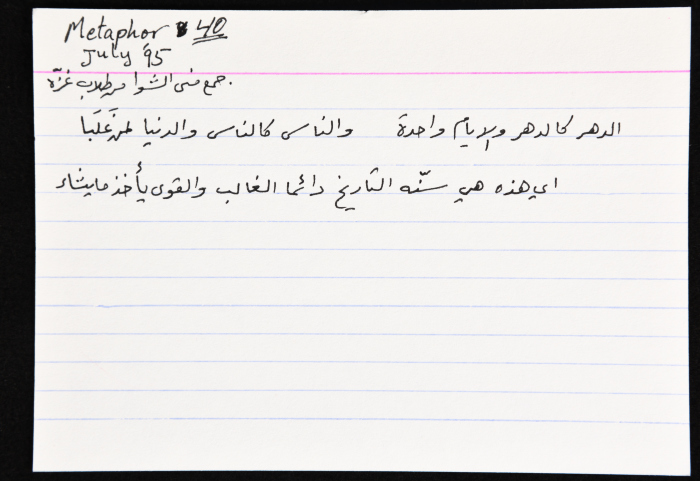 Metaphor 40
July '95
جمع منى الشوا من طلاب غزّة.
الدهر كالدهر والايام واحدة والناس كالناس والدنيا لمن غَلَبا
اي هذه هي سنّه التاريخ دائما الغالب والقوى يأخذ ما يشاء